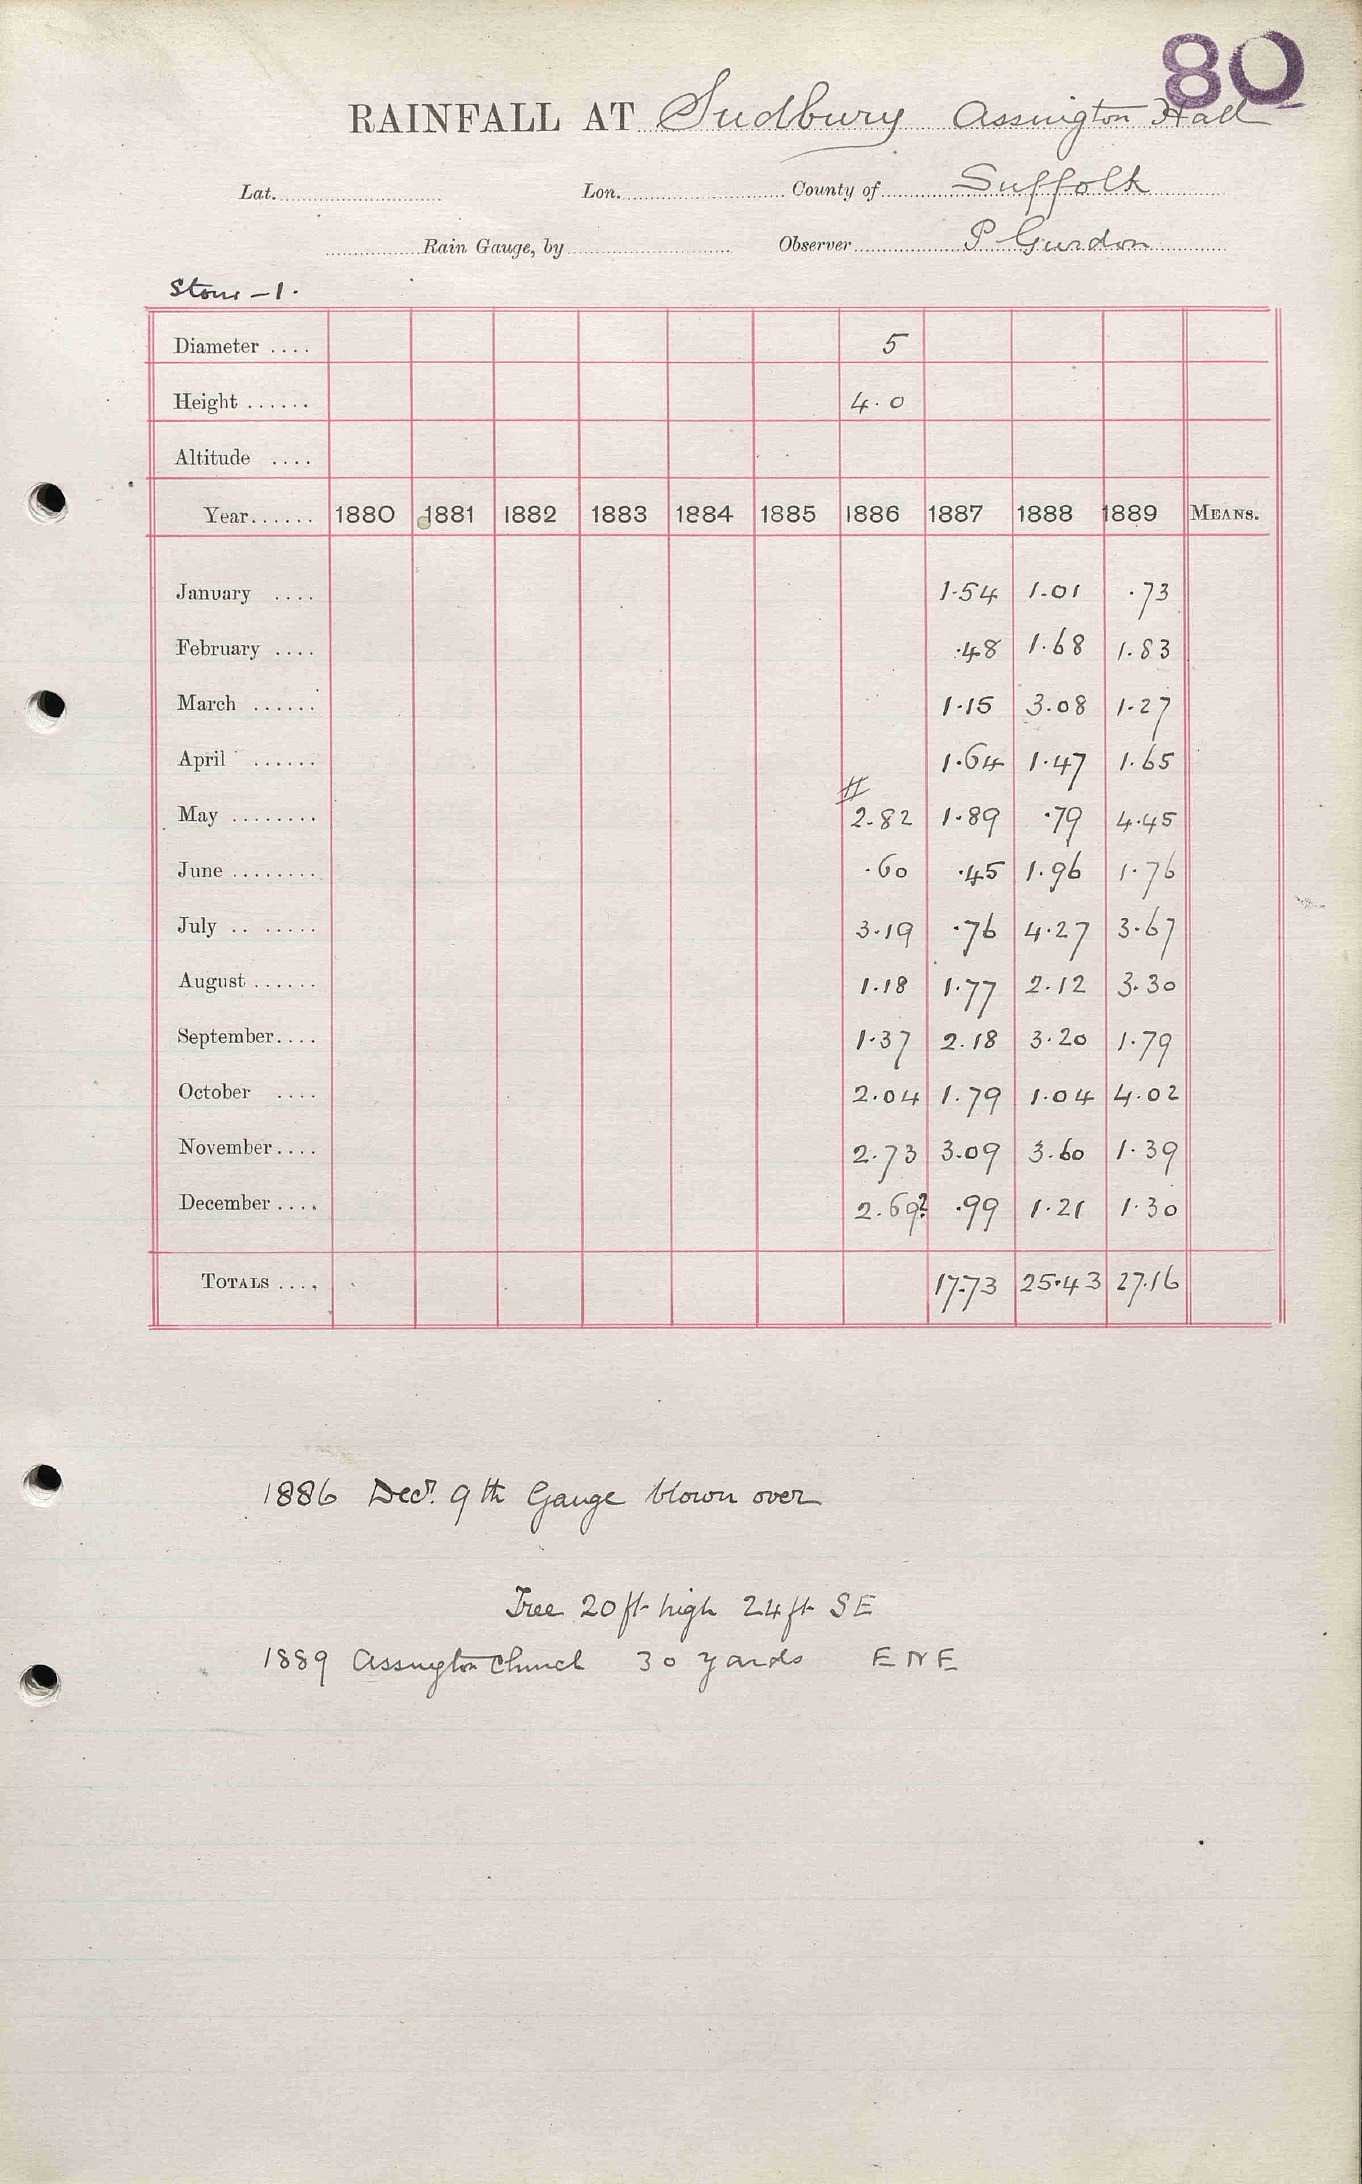 80
RAINFALL AT Sudbury Assington Hall
Lat. Lon. County of Suffolk
Rain Gauge, by Observer P Gurdon
Stour - 1.
Diameter .... 5
Height ...... 4.0
Altitude ....
Year...... 1880 1881 1882 1883 1884 1885 1886 1887 1888 1889 MEANS.
January .... 1.54 1.01 .73
February .... .48 1.68 1.83
March ...... 1.15 3.08 1.27
April ...... 1.64 1.47 1.65
May ........ 2.82 1.89 .79 4.45
June ........ .60 .45 1.96 1.76
July .. ..... 3.19 .76 4.27 3.67
August ...... 1.18 1.77 2.12 3.30
September.... 1.37 2.18 3.20 1.79
October .... 2.04 1.79 1.04 4.02
November.... 2.73 3.09 3.60 1.39
December .... 2.69? .99 1.21 1.30
TOTALS .... 17.73 25.43 27.16
1886 Decr. 9th Gauge blown over
Tree 20 ft high 24 ft SE
1889 Assington Church 30 yards ENE